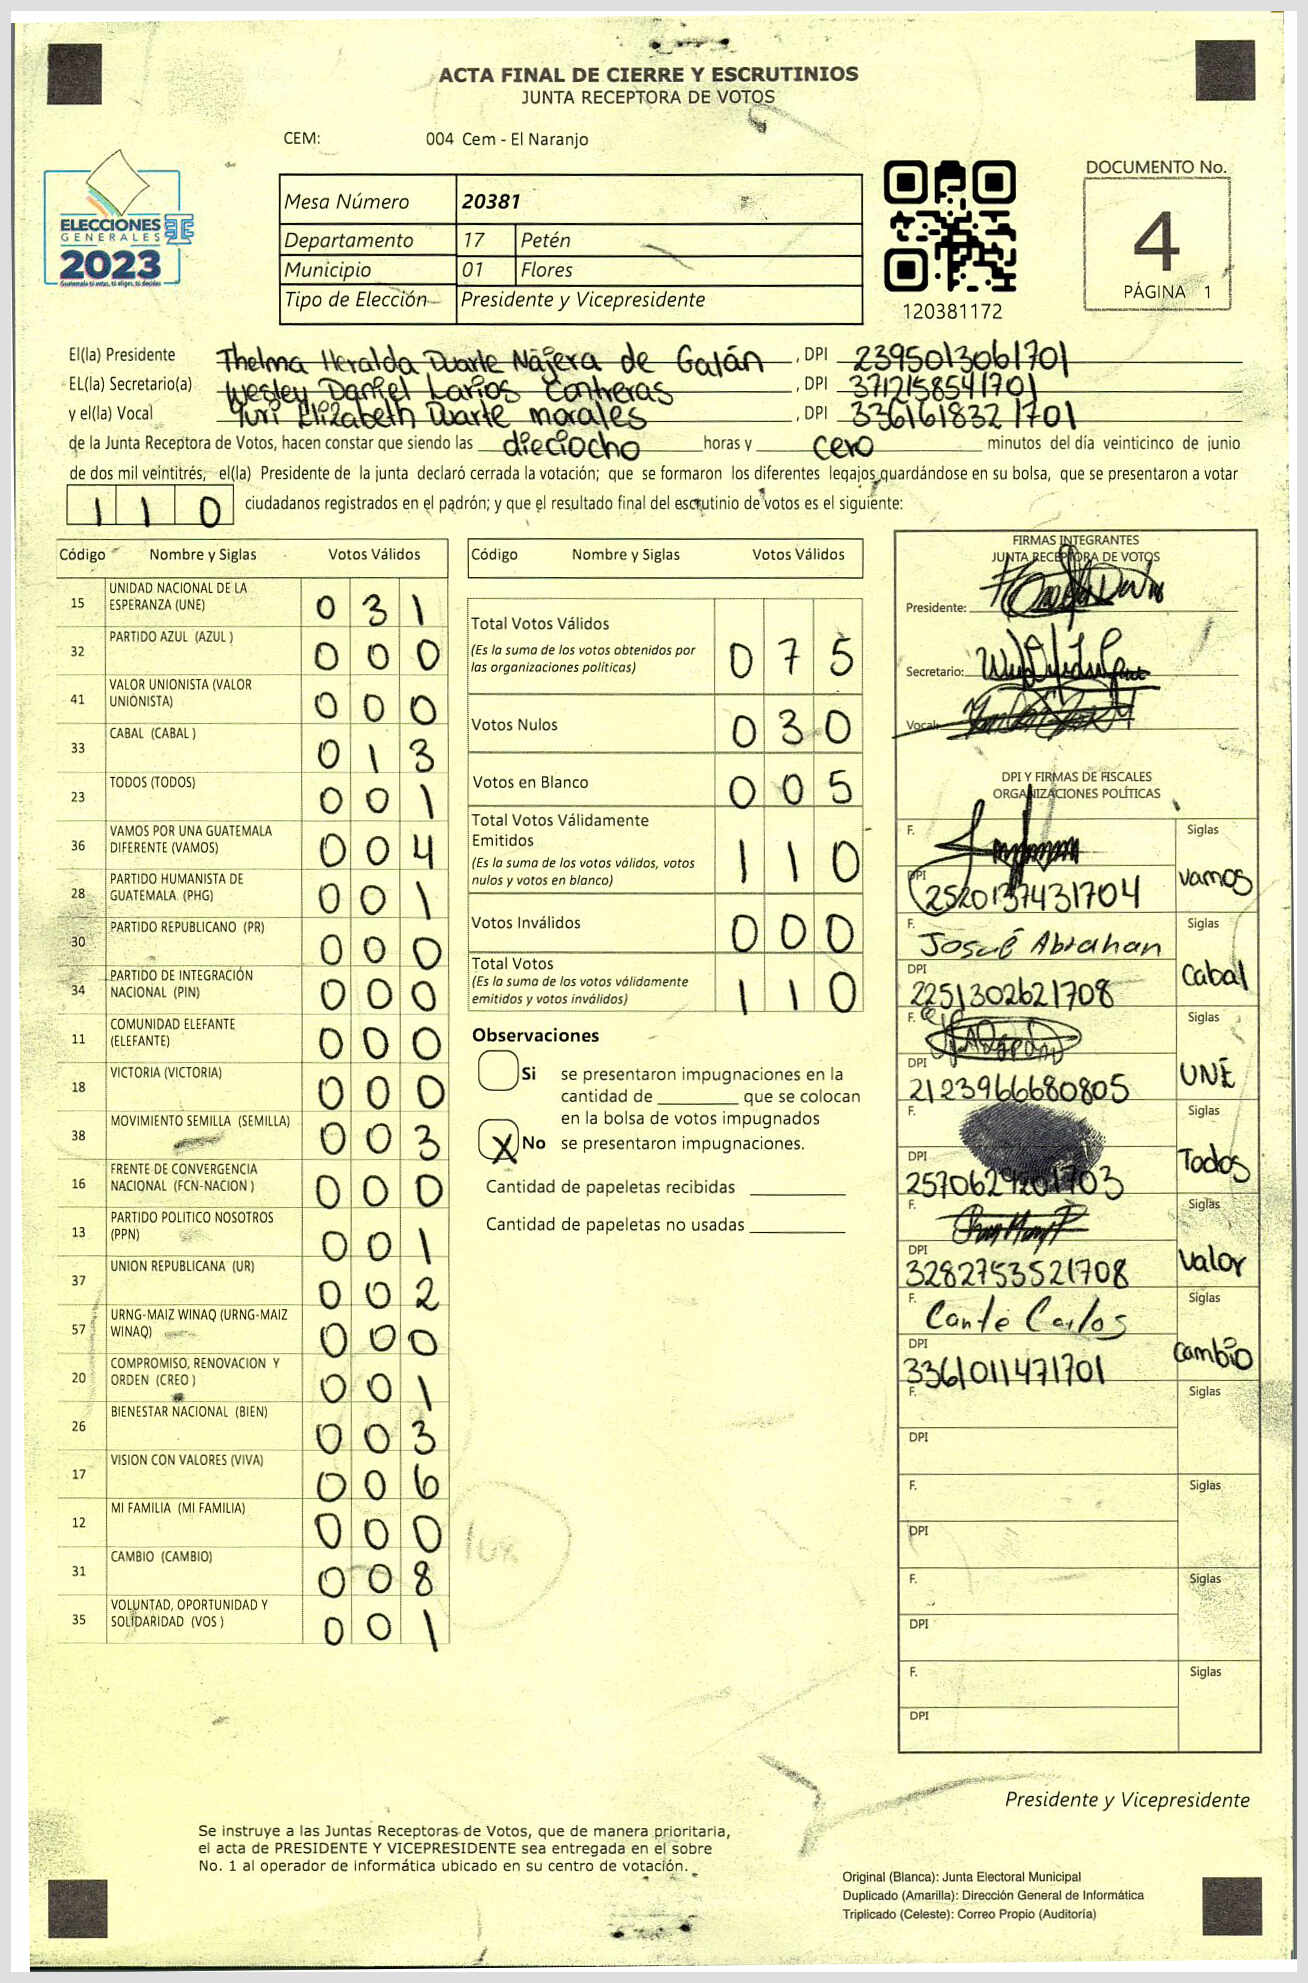 ACTA FINAL DE CIERRE Y ESCRUTINIOS
JUNTA RECEPTORA DE VOTOS
CEM: 004 Cem - El Naranjo
ELECCIONES
GENERALES
2023
Guatemala tú votas, tú eliges, tú decides
Mesa Número 20381
Departamento 17 Petén
Municipio 01 Flores
Tipo de Elección Presidente y Vicepresidente
120381172
DOCUMENTO No.
4
PÁGINA 1
El(la) Presidente Thelma Heralda Duarte Nájera de Galán , DPI 2395013061701
EL(la) Secretario(a) Wesley Daniel Larios Contreras , DPI 3712158541701
y el(la) Vocal Yuri Elizabeth Duarte morales , DPI 3361618321701
de la Junta Receptora de Votos, hacen constar que siendo las dieciocho horas y cero minutos del día veinticinco de junio
de dos mil veintitrés, el(la) Presidente de la junta declaró cerrada la votación; que se formaron los diferentes legajos guardándose en su bolsa, que se presentaron a votar
110 ciudadanos registrados en el padrón; y que el resultado final del escrutinio de votos es el siguiente:
Código Nombre y Siglas Votos Válidos
15 UNIDAD NACIONAL DE LA ESPERANZA (UNE) 031
32 PARTIDO AZUL (AZUL ) 000
41 VALOR UNIONISTA (VALOR UNIONISTA) 000
33 CABAL (CABAL ) 013
23 TODOS (TODOS) 001
36 VAMOS POR UNA GUATEMALA DIFERENTE (VAMOS) 004
28 PARTIDO HUMANISTA DE GUATEMALA (PHG) 001
30 PARTIDO REPUBLICANO (PR) 000
34 PARTIDO DE INTEGRACIÓN NACIONAL (PIN) 000
11 COMUNIDAD ELEFANTE (ELEFANTE) 000
18 VICTORIA (VICTORIA) 000
38 MOVIMIENTO SEMILLA (SEMILLA) 003
16 FRENTE DE CONVERGENCIA NACIONAL (FCN-NACION ) 000
13 PARTIDO POLITICO NOSOTROS (PPN) 001
37 UNION REPUBLICANA (UR) 002
57 URNG-MAIZ WINAQ (URNG-MAIZ WINAQ) 000
20 COMPROMISO, RENOVACION Y ORDEN (CREO ) 001
26 BIENESTAR NACIONAL (BIEN) 003
17 VISION CON VALORES (VIVA) 006
12 MI FAMILIA (MI FAMILIA) 000
31 CAMBIO (CAMBIO) 008
35 VOLUNTAD, OPORTUNIDAD Y SOLIDARIDAD (VOS ) 001
Código Nombre y Siglas Votos Válidos
Total Votos Válidos 075
(Es la suma de los votos obtenidos por
las organizaciones políticas)
Votos Nulos 030
Votos en Blanco 005
Total Votos Válidamente
Emitidos 110
(Es la suma de los votos válidos, votos
nulos y votos en blanco)
Votos Inválidos 000
Total Votos 110
(Es la suma de los votos válidamente
emitidos y votos inválidos)
Observaciones
Si se presentaron impugnaciones en la
cantidad de ________ que se colocan
en la bolsa de votos impugnados
X No se presentaron impugnaciones.
Cantidad de papeletas recibidas
Cantidad de papeletas no usadas
FIRMAS INTEGRANTES
JUNTA RECEPTORA DE VOTOS
Presidente:
Secretario:
Vocal:
DPI Y FIRMAS DE FISCALES
ORGANIZACIONES POLÍTICAS
F. Siglas
DPI 2520137431704 vamos
F. Josué Abrahan Siglas
DPI 2251302621708 Cabal
F. Siglas
DPI 2123966680805 UNE
F. Siglas
DPI Todos
F. Siglas
DPI 3282753521708 Valor
F. Cante Carlos Siglas
DPI 3361011471701 cambio
F. Siglas
DPI
F. Siglas
DPI
F. Siglas
DPI
F. Siglas
DPI
Presidente y Vicepresidente
Se instruye a las Juntas Receptoras de Votos, que de manera prioritaria,
el acta de PRESIDENTE Y VICEPRESIDENTE sea entregada en el sobre
No. 1 al operador de informática ubicado en su centro de votación.
Original (Blanca): Junta Electoral Municipal
Duplicado (Amarilla): Dirección General de Informática
Triplicado (Celeste): Correo Propio (Auditoría)